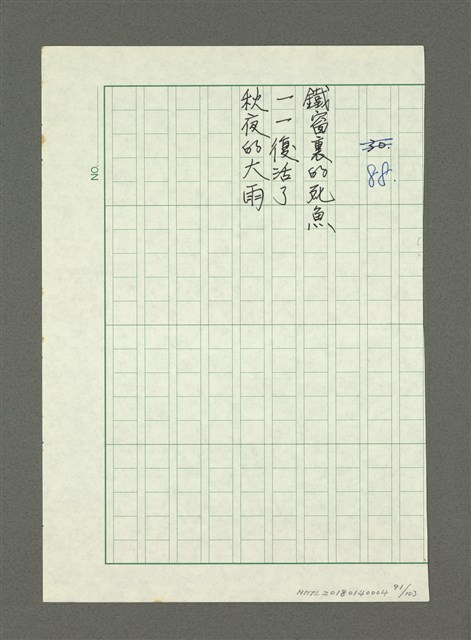 30.
88.
鐵窗裏的死魚
一一復活了
秋夜的大雨
NO.
NMTL20180140004 91/103